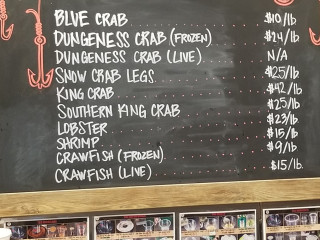 BLUE CRAB $10/lb
DUNGENESS CRAB (FROZEN) $24/lb
DUNGENESS CRAB (LIVE) N/A
SNOW CRAB LEGS $25/lb
KING CRAB $42/lb
SOUTHERN KING CRAB $25/lb
LOBSTER $23/lb
SHRIMP $15/lb
CRAWFISH (FROZEN) $9/lb
CRAWFISH (LIVE) $15/lb.